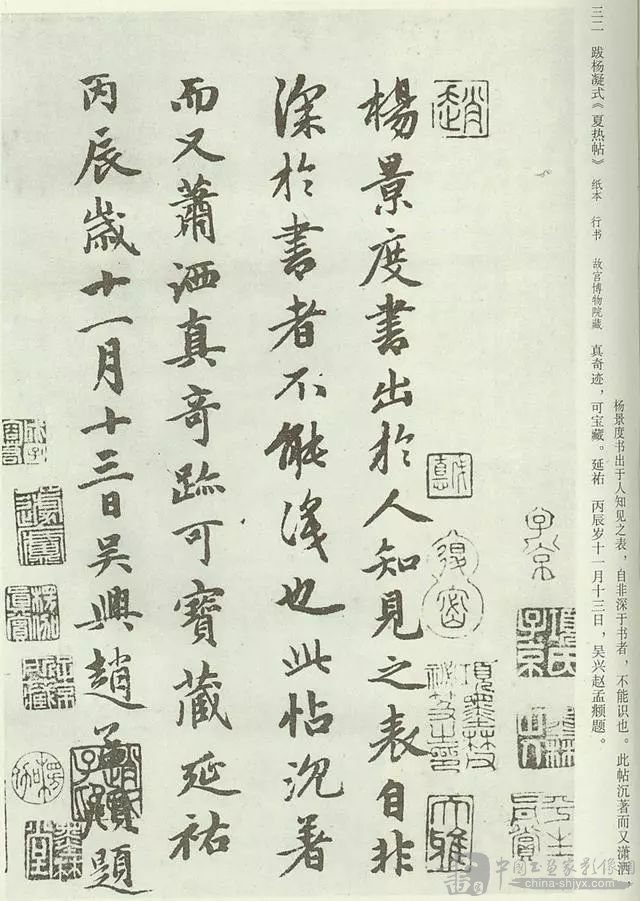 三二 跋杨凝式《夏热帖》 纸本 行书 故宫博物院藏
杨景度书出于人知见之表，自非深于书者，不能识也。此帖沉著而又潇洒，
真奇迹，可宝藏。延祐 丙辰岁十一月十三日，吴兴赵孟頫题。
楊景度書出於人知見之表自非
深於書者不能識也此帖沉著
而又蕭洒真奇跡可寶藏延祐
丙辰歲十一月十三日吳興趙孟頫題
趙
子京
項墨林
中国书画家影像网
china-shjyx.com